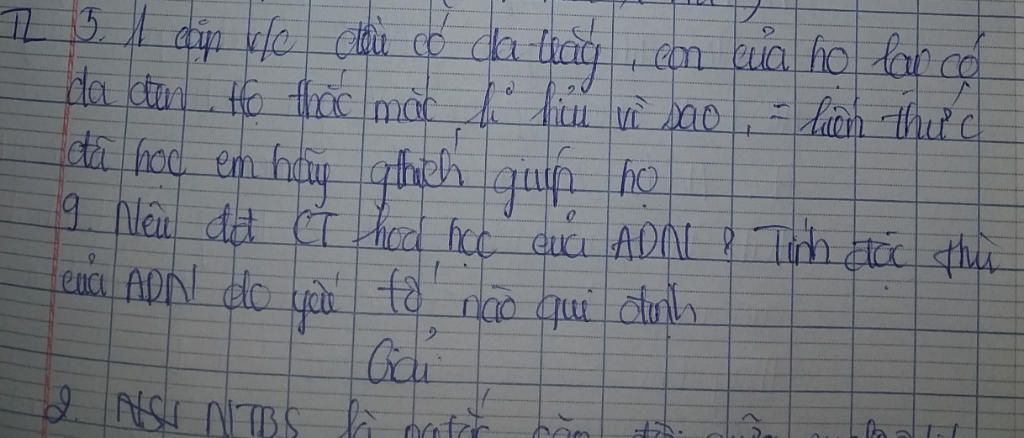 5. 1 cặp v/c đều có da trắng, con của họ lại có
da đen. Họ thắc mắc k hiểu vì sao, = kiến thức
đã học em hãy gthích giúp họ
9. Nêu đđ CT hoá học của ADN? Tính đặc thù
của ADN do yếu tố nào qui định
Giải
2. NTBS là